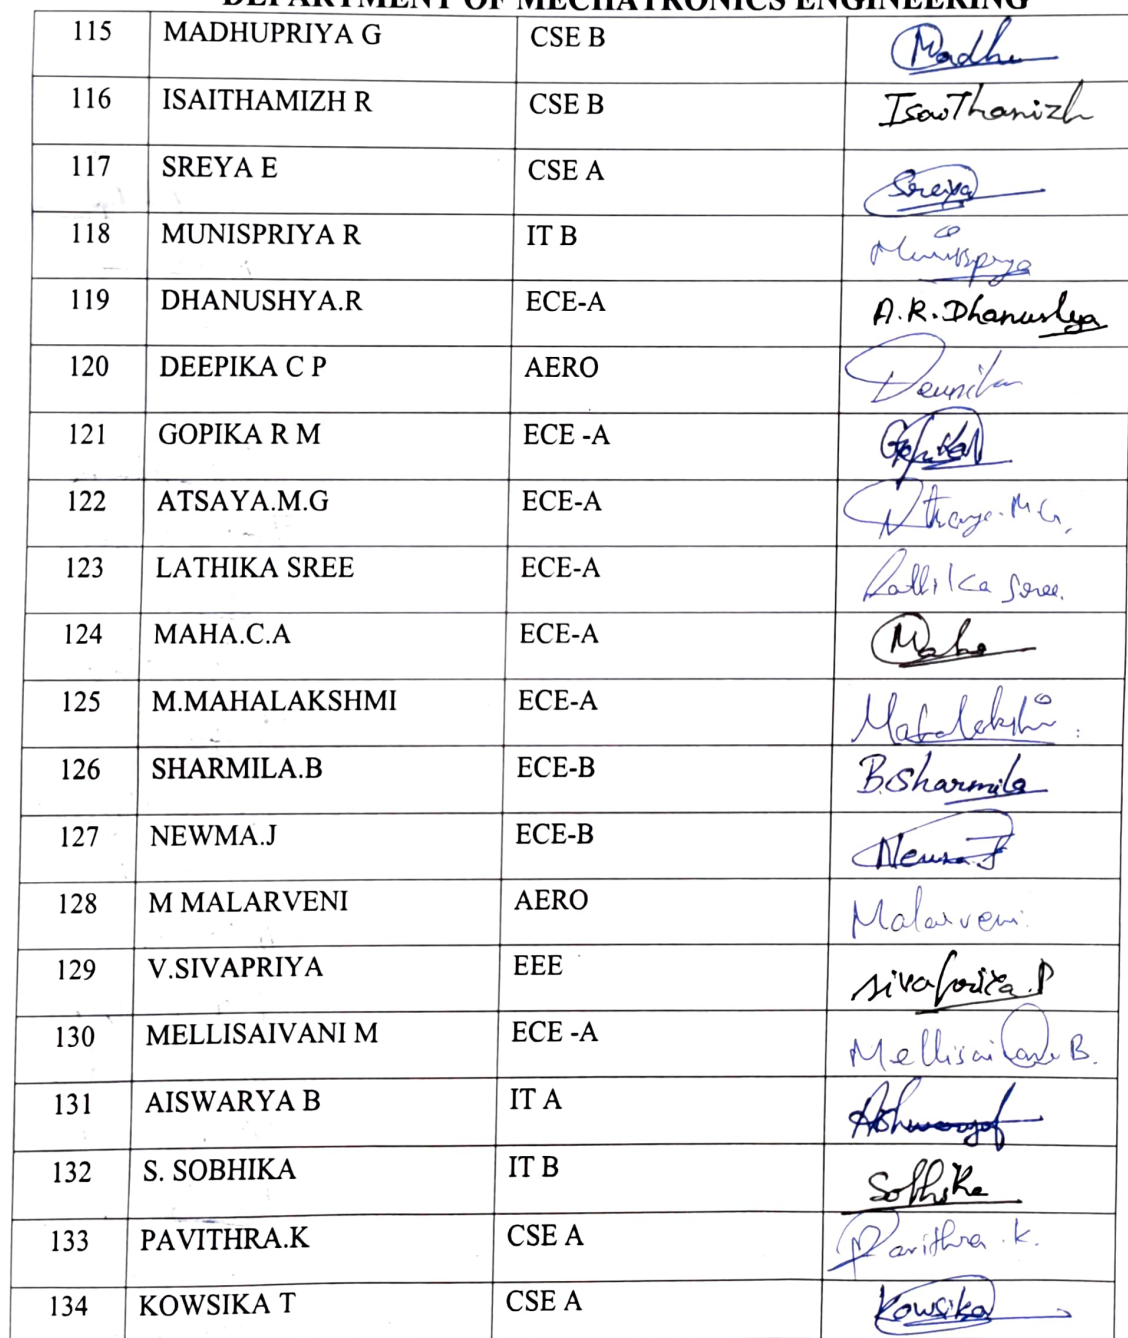 DEPARTMENT OF MECHATRONICS ENGINEERING
115 MADHUPRIYA G CSE B Madhu
116 ISAITHAMIZH R CSE B IsaiThamizh
117 SREYA E CSE A Sreya
118 MUNISPRIYA R IT B Munispriya
119 DHANUSHYA.R ECE-A A.R.Dhanushya
120 DEEPIKA C P AERO
121 GOPIKA R M ECE -A
122 ATSAYA.M.G ECE-A M.G.
123 LATHIKA SREE ECE-A Lathika Sree.
124 MAHA.C.A ECE-A Maha
125 M.MAHALAKSHMI ECE-A
126 SHARMILA.B ECE-B B.Sharmila
127 NEWMA.J ECE-B Newma.J
128 M MALARVENI AERO Malarveni.
129 V.SIVAPRIYA EEE
130 MELLISAIVANI M ECE -A Mellisaivani B.
131 AISWARYA B IT A
132 S. SOBHIKA IT B Sobhika
133 PAVITHRA.K CSE A Pavithra.K.
134 KOWSIKA T CSE A Kowsika